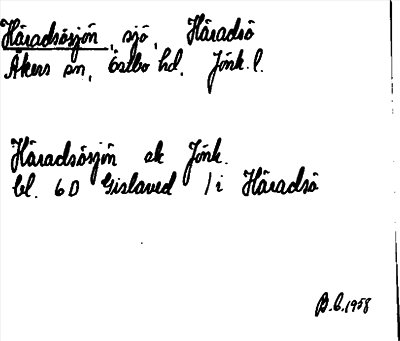 Häradsösjön, sjö, Häradsö
Åkers sn, Östbo hd. Jönk. l.
Häradsösjön ek Jönk.
bl. 6D Gislaved /i Häradsö
B.C. 1958